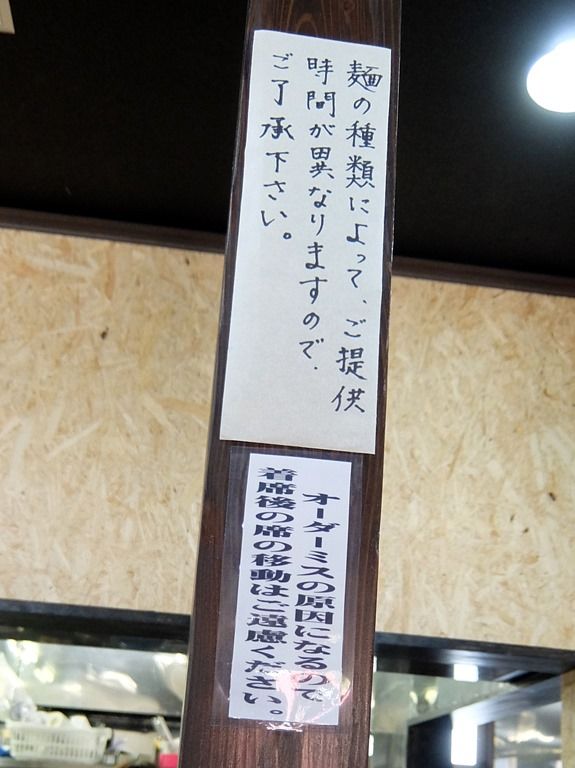 麺の種類によって、ご提供
時間が異なりますので、
ご了承下さい。
オーダーミスの原因になるので
着席後の席の移動はご遠慮ください。